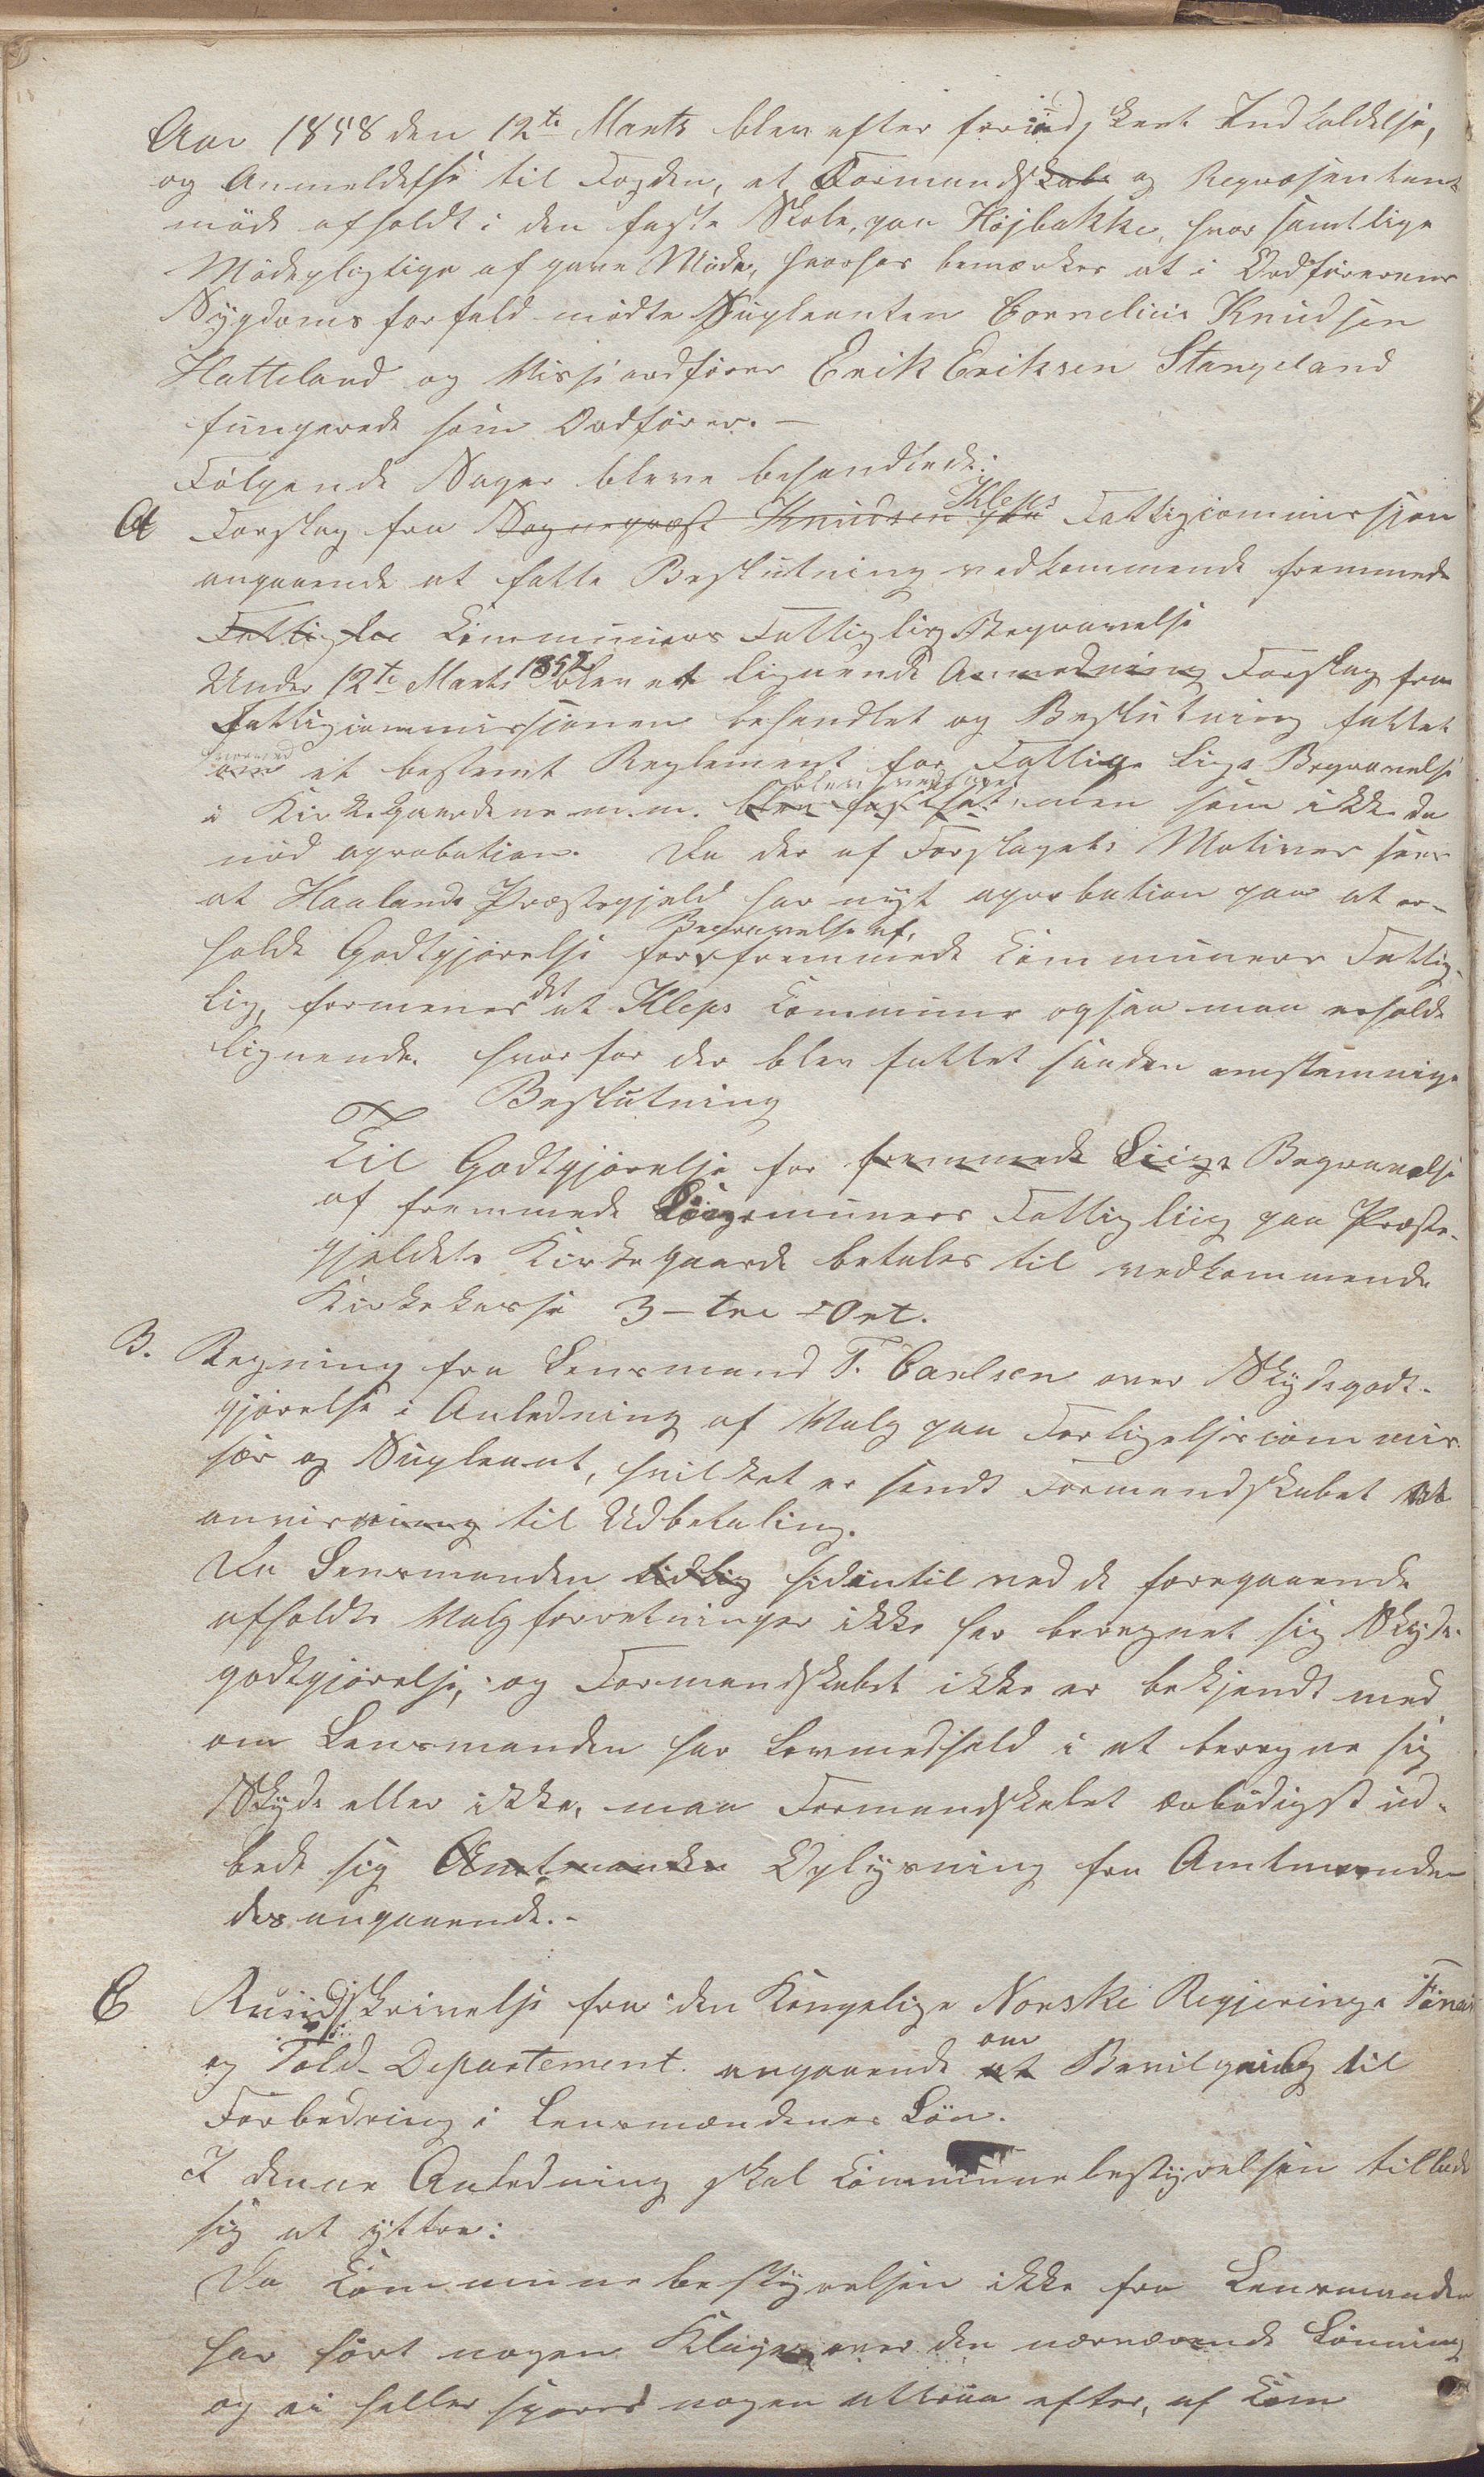 Aar 1858 den 12te Marts blev efter forind skent Indkaldelse,
og Anmeldelse til Fogden, et Formandskabs og Repræsentant
möde afholdt i den faste Skole, paa Höjbakke, hvor samtlige
Mödepligtige af gave Möde, hvorhos bemærkes at i Ordförerens
Sygdoms forfald mödte Supleanten Cornelius Knudsen
Hatteland og Viseordförer Erik Eriksen Stangeland
fungerede som Ordförer. —
Fölgende Sager bleve behandlede:
A Forslag fra Sognepræst Knudsen Kleps Fattigcommission
angaaende at fatte Beslutning vedkommende fremmede
Fattig Communers Fattiglig Begravelse
Under 12te Marts 1852 blev et lignende Anmodning Forslag fra
Fattigcommissionen behandlet og Beslutning fattet
om hvorved et bestemt Reglement for Fattige Ligs Begravelse
i Kirkegaardene m.m. blev fastsat blev vedtaget men som ikke da
nöd aprobation. Da der af Forslagets Motiver sees
at Haalands Præstegjeld har nyt aprobation paa at er-
holde Godtgjörelse for Begravelse af fremmede Communers Fattig-
lig, formenes det at Kleps Commune ogsaa maa erholde
lignende. hvorfor der blev fattet saadan eenstemmig
Beslutning
Til Godtgjörelse for fremmede Liigs Begravelse
af fremmede Communers Fattigliig paa Præste-
gjeldets Kirkegaarde betales til vedkommende
Kirkekasse 3 - tre - Ort.
B. Regning fra Lensmand T. Carlsen over Skydsgodt-
gjörelse i Anledning af Valg paa Forligelsescommis-
sær og Supleant, hvilket er sendt Formandskabet til
anvisning til Udbetaling.
Da Lensmanden tidlig hidintil ved de foregaaende
afholdte Valgforretninger ikke har beregnet sig Skyds-
godtgjörelse, og Formandskabet ikke er bekjendt med
om Lensmanden har Lovmedhold i at beregne sig
Skyds eller ikke, maa Formandskabet ærbödigst ud-
bede sig Amtmanden Oplysning fra Amtmanden
desangaaende. -
C Rundskrivelse fra den Kongelige Norske Regjerings Finans
og Told-Departement angaaende at om Bevilgning til
Forbedring i Lensmændenes Lön.
I denne Anledning skal Communebestyrelsen tillade
sig at yttre:
Da Communebestyrelsen ikke fra Lensmanden
har hört nogen Klage over den nærværende Lönning
og ei heller spores nogen attraa efter, af Com